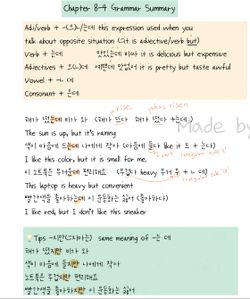 Chapter 8-4 Grammar Summary
Adj/verb + -(으)ㄴ/는데 this expression used when you
talk about opposite situation (it is adjective/verb but)
Verb + 는데 맛있는데 비싸 it is delicious but expensive
Adjectives + 으(ㄴ)데 예쁜데 맛없어 it is pretty but taste awful
Vowel + -ㄴ 데
Consonant + 은데
rise has risen
해가 떴는데 비가 와 (해가 뜨다 해가 떴다 +는데)
Made by
The sun is up, but it's raining
색이 마음에 드는데 나에게 작아 (마음에 들다 like it 드 + 는데)
I like this color, but it is small for me.
이 노트북은 무거운데 편리해요 (무겁다 heavy 무거 우 + ㄴ 데)
This laptop is heavy but convenient
빨간색을 좋아하는데 이 운동화는 싫어 (좋아하다)
I like red, but I don't like this sneaker
Tips -지만(그러나) same meaning of -는 데
해가 떴지만 비가 와
색이 마음에 들지만 나에게 작아
노트북은 무겁지만 편리해요
빨간색을 좋아하지만 이 운동화는 싫어